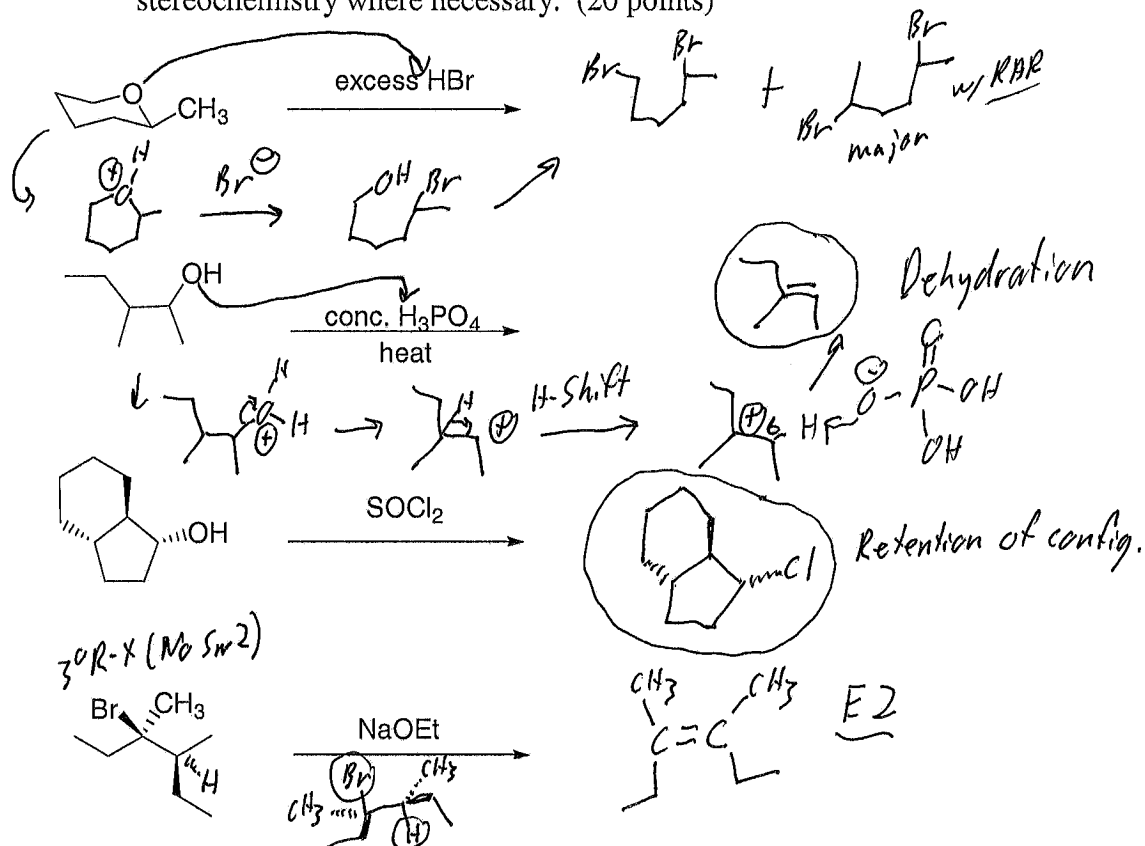 stereochemistry where necessary. (20 points)
O
CH₃
excess HBr
Br
Br
+
Br
Br
major
w/ RAR
H
⊕
O
Br⊖
OH
Br
OH
conc. H₃PO₄
heat
Dehydration
H
O
H
⊕
H
⊕
H-Shift
⊕
H
⊖
O
O
P
OH
OH
OH
SOCl₂
Cl
Retention of config.
3° R-X (No SN2)
Br
CH₃
H
NaOEt
Br
CH₃
CH₃
H
CH₃
CH₃
C=C
E2